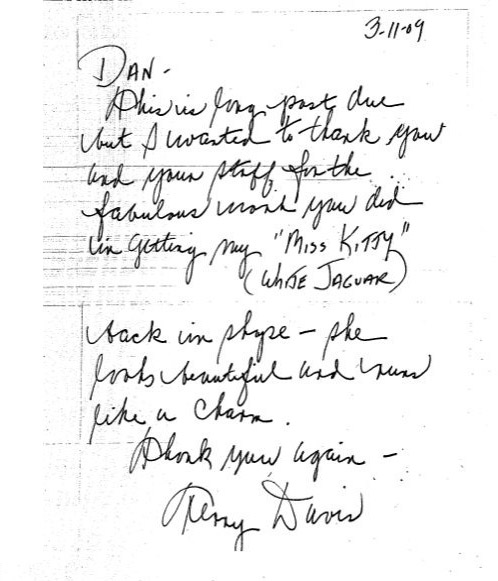 3-11-09
DAN -
This is long past due
but I wanted to thank you
and your staff for the
fabulous work you did
in getting my "MISS KITTY"
(WHITE JAGUAR)
back in shape - she
looks beautiful and runs
like a charm.
Thank you again -
Terry Davis